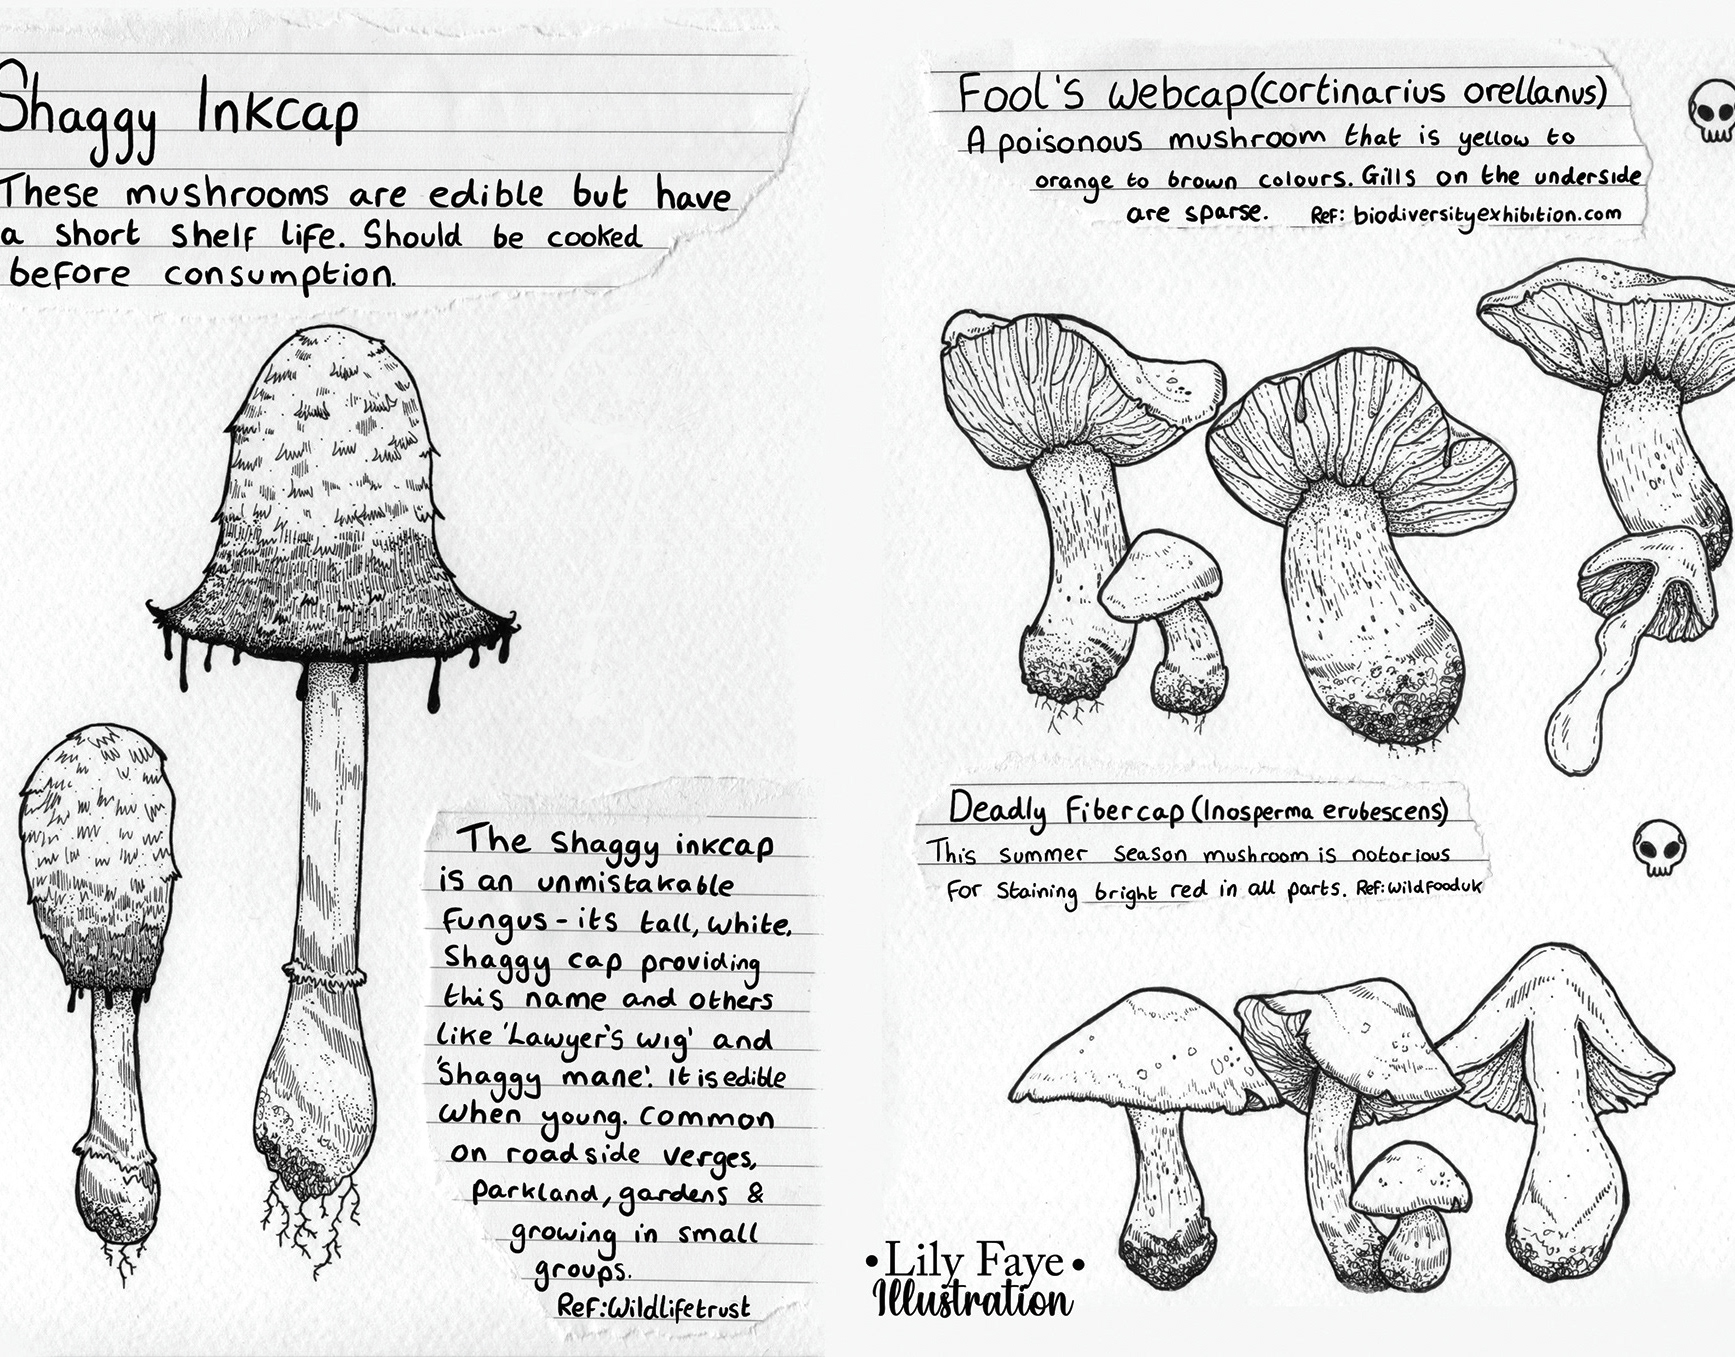 Shaggy Inkcap
These mushrooms are edible but have
a short shelf life. Should be cooked
before consumption.
The shaggy inkcap
is an unmistakable
fungus - its tall, white,
shaggy cap providing
this name and others
like 'Lawyer's wig' and
'Shaggy mane'. It is edible
when young. Common
on roadside verges,
parkland, gardens &
growing in small
groups.
Ref: Wildlifetrust
Fool's Webcap (cortinarius orellanus)
A poisonous mushroom that is yellow to
orange to brown colours. Gills on the underside
are sparse. Ref: biodiversityexhibition.com
Deadly Fibercap (Inosperma erubescens)
This summer season mushroom is notorious
for staining bright red in all parts. Ref: Wildfooduk
• Lily Faye •
Illustration